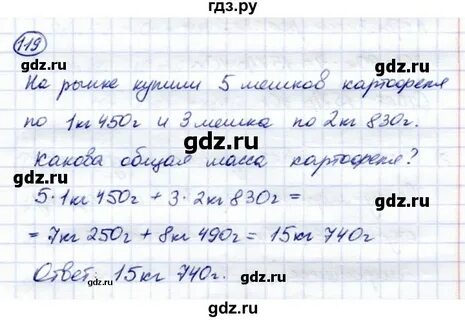 гдз.ру
119
На рынке купили 5 мешков картофеля
gdz.ru
gdz.ru
по 1кг 450г и 3 мешка по 2кг 830г.
gdz.ru
Какова общая масса картофеля?
gdz.ru
gdz.ru
5·1кг 450г + 3·2кг 830г =
= 7кг 250г + 8кг 490г = 15кг 740г
gdz.ru
Ответ: 15кг 740г.
gdz.ru
gdz.ru